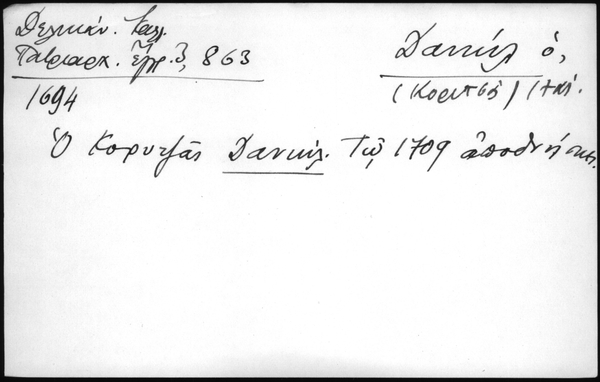 Δελικάν. Καλλ.
Πατριαρχ. ἔγγρ. 3, 863
1694
Δανιήλ ὁ,
(Κορυτσᾶ)
Ὁ Κορυτζᾶς Δανιήλ. Τῷ 1709 ἀποθνήσκει.